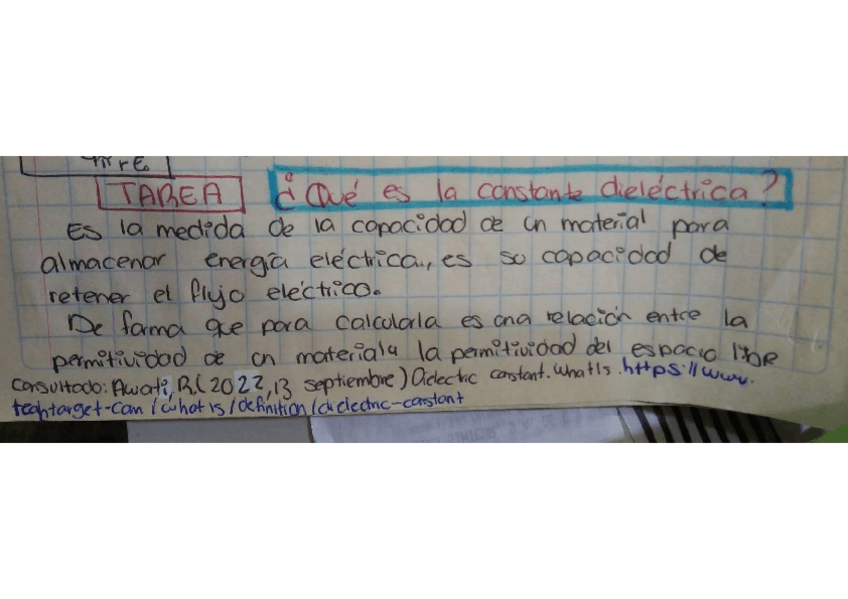 TAREA ¿Qué es la constante dieléctrica?
Es la medida de la capacidad de un material para
almacenar energía eléctrica., es su capacidad de
retener el flujo eléctrico.
De forma que para calcularla es una relación entre la
permitividad de un material y la permitividad del espacio libre
Consultado: Awati, R. (2022, 13 septiembre) Dielectric constant. WhatIs. https://www.
techtarget-com/whatis/definition/dielectric-constant